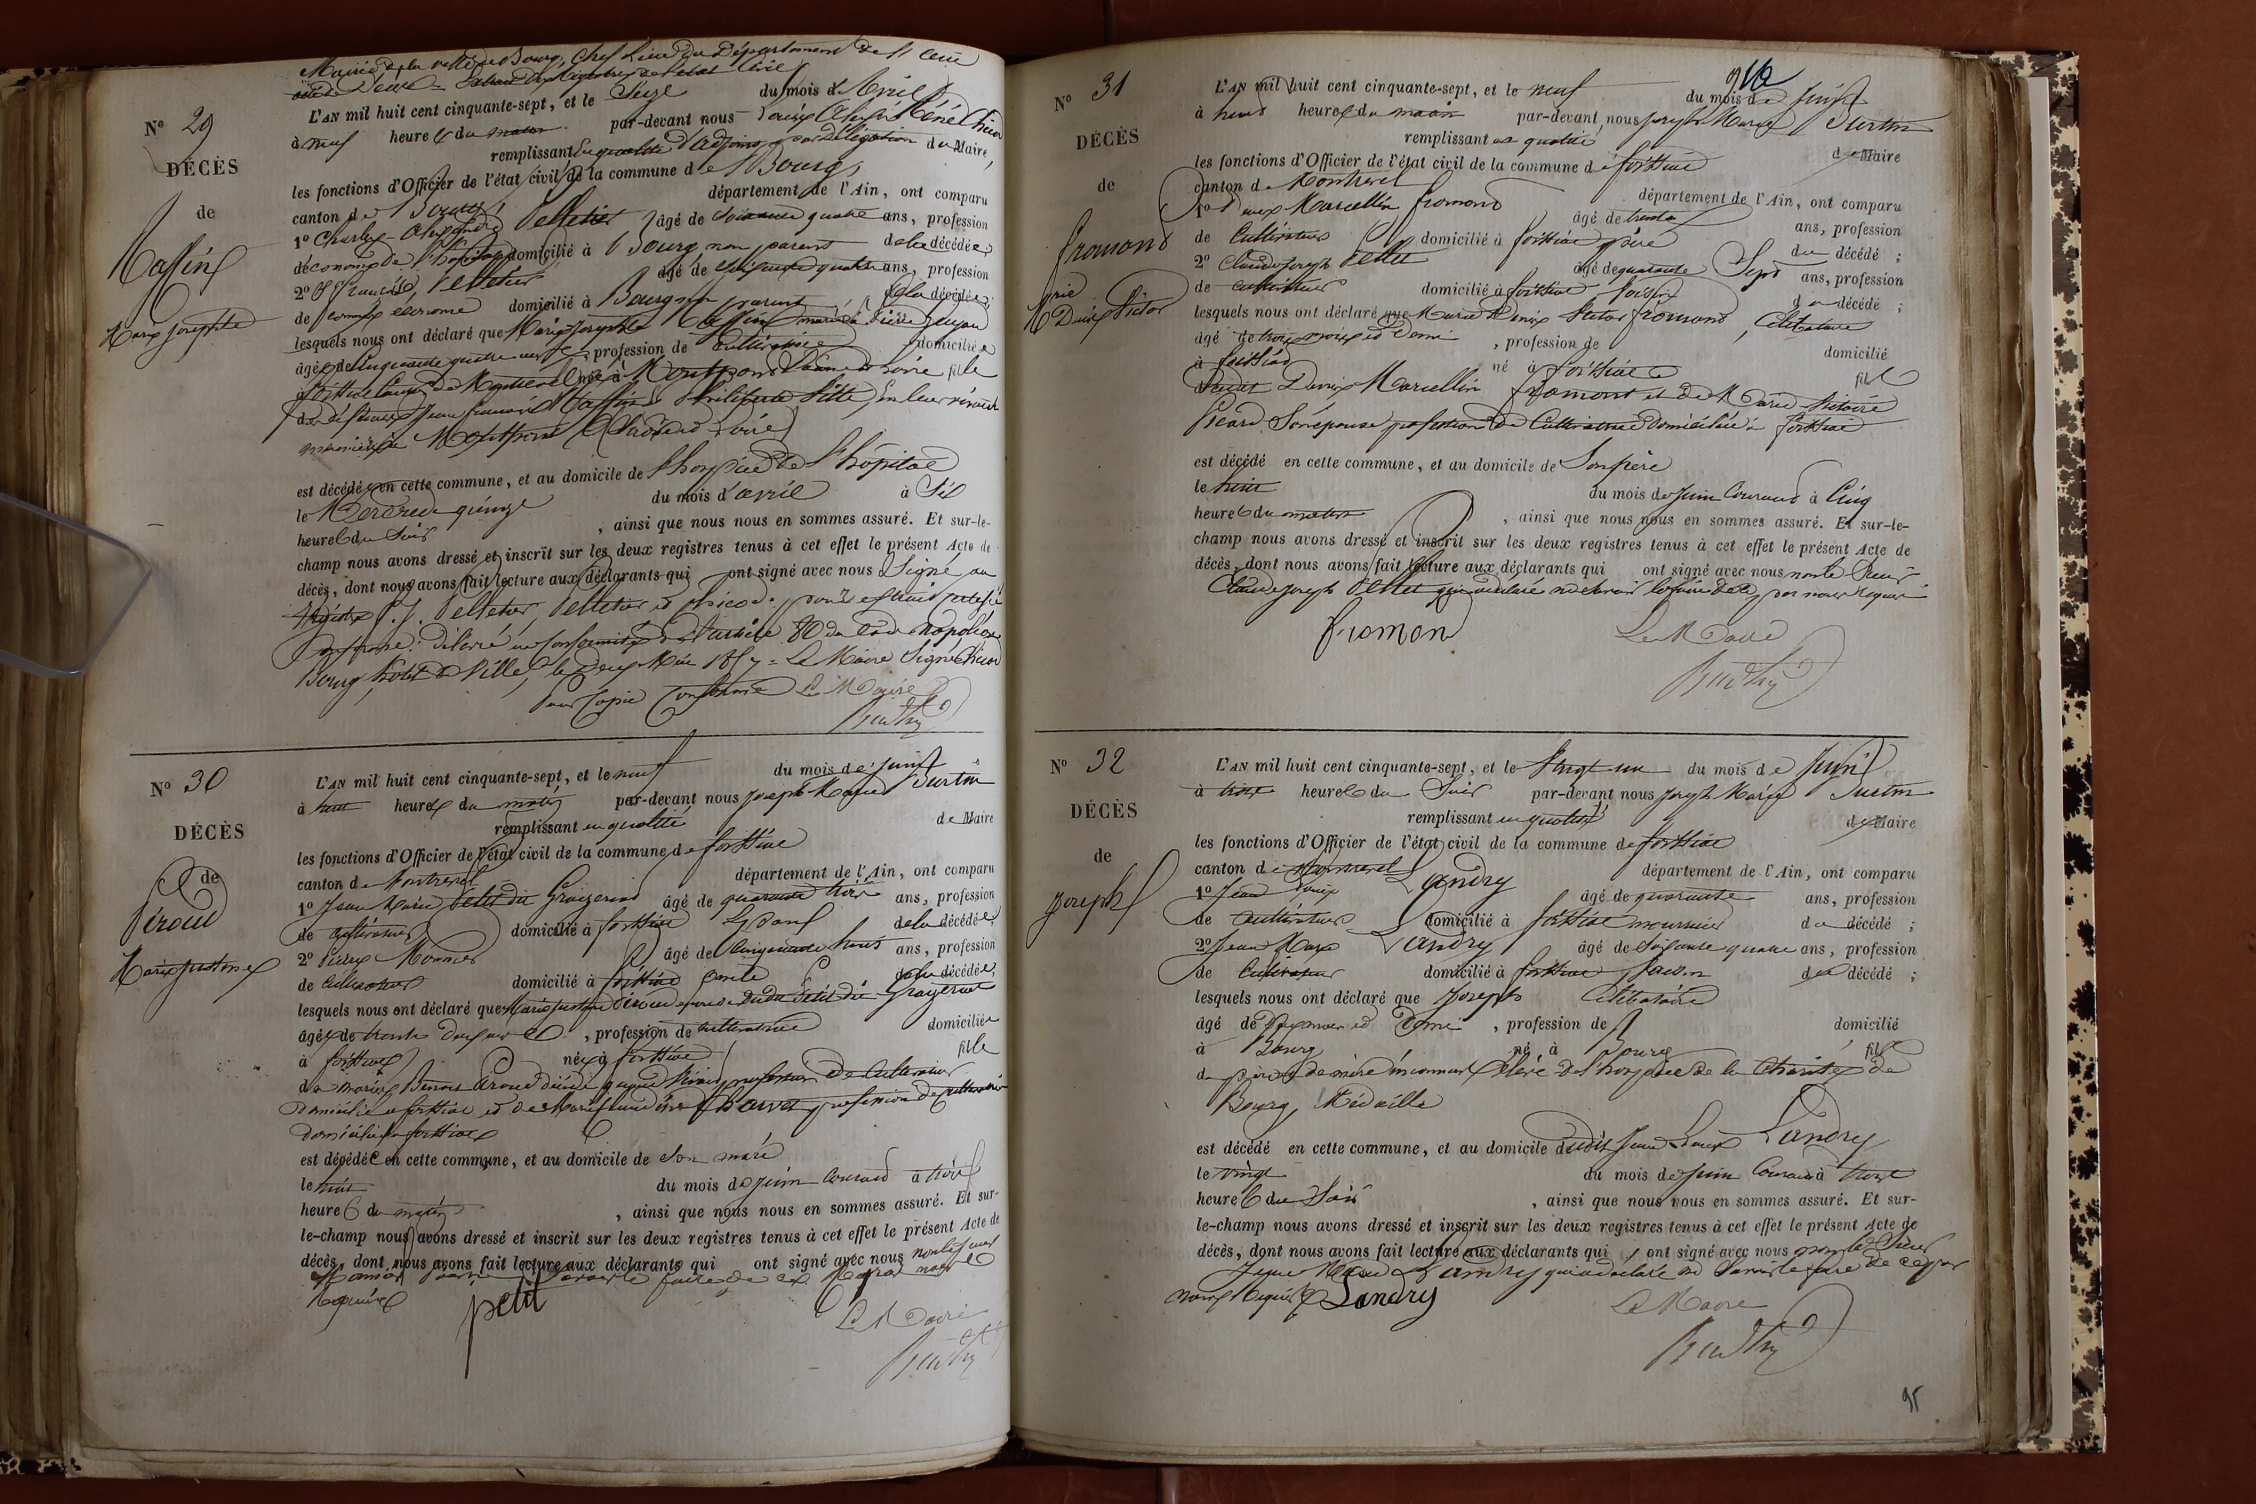 Mairie de la ville de Bourg, Chef lieu du Département de l'Ain
Extrait des registres de l'état Civil
N° 29
DÉCÈS
de
Maffin
Marie Josephte
L'AN mil huit cent cinquante-sept, et le Seize du mois d'Avril
à neuf heures du matin par-devant nous Louis Chicod
remplissant en qualité d'adjoint par délégation du Maire,
les fonctions d'Officier de l'état civil de la commune de Bourg,
canton de Bourg, département de l'Ain, ont comparu
1° Charles Pelletier âgé de Soixante quatre ans, profession
d'économe de l'hôpital domicilié à Bourg non parent de la décédée,
2° François Pelletier âgé de quatre ans, profession
de commis économe domicilié à Bourg non parent de la décédée;
lesquels nous ont déclaré que Marie Josephte Maffin mariée à Pierre Guyon
âgée de Cinquante quatre ans, profession de Cultivatrice domiciliée
à Foissiat canton de Montrevel née à Montpont Saône et Loire fille
de défunts Jean François Maffin et Philiberte en leur vivant
de Montpont (Saône et Loire)
est décédée en cette commune, et au domicile de l'hospice de l'hôpital
le Mercredi quinze du mois d'avril à Six
heures du Soir, ainsi que nous nous en sommes assuré. Et sur-le-
champ nous avons dressé et inscrit sur les deux registres tenus à cet effet le présent Acte de
décès, dont nous avons fait lecture aux déclarants qui ont signé avec nous Signé au
registre Pelletier, Pelletier et Chicod. pour extrait
conforme délivré en conformité de l'article 80 du Code Napoléon
Bourg, hôtel de Ville, le deux Mai 1857 = Le Maire Signé Chicod
Pour Copie Conforme Le Maire
N° 30
DÉCÈS
de
Péroud
Marie Justine
L'AN mil huit cent cinquante-sept, et le neuf du mois de juin
à huit heures du matin par-devant nous joseph Marie
remplissant en qualité de Maire
les fonctions d'Officier de l'état civil de la commune de foissiat
canton de Montrevel département de l'Ain, ont comparu
1° Jean Marie Petit dit âgé de quarante trois ans, profession
de cultivateur domicilié à foissiat Epoux de la décédée,
2° Pierre Monnier âgé de Cinquante huit ans, profession
de cultivateur domicilié à foissiat oncle de la décédée,
lesquels nous ont déclaré que Marie justine Péroud épouse dudit Petit dit
âgée de trente deux ans, profession de cultivatrice domiciliée
à foissiat née à foissiat fille
de Benoit Péroud profession de Cultivateur
domicilié à foissiat et de Marie profession de cultivatrice
domiciliée à foissiat
est décédée en cette commune, et au domicile de Son mari
le huit du mois de juin courant à trois
heures du matin, ainsi que nous nous en sommes assuré. Et sur-
le-champ nous avons dressé et inscrit sur les deux registres tenus à cet effet le présent Acte de
décès, dont nous avons fait lecture aux déclarants qui ont signé avec nous
Requis
petit
Le Maire
N° 31
DÉCÈS
de
fromond
Marie
Denis Victor
L'AN mil huit cent cinquante-sept, et le neuf du mois de juin
à neuf heures du matin par-devant nous joseph Marie
remplissant en qualité de Maire
les fonctions d'Officier de l'état civil de la commune de foissiat
canton de Montrevel département de l'Ain, ont comparu
1° Denis Marcellin fromond âgé de trente ans, profession
de Cultivateur domicilié à foissiat père du décédé;
2° Claude joseph Pellet âgé de quarante Sept ans, profession
de cultivateur domicilié à foissiat voisin du décédé;
lesquels nous ont déclaré que Marie Denis Victor fromond, Célibataire
âgé de trois mois et Demi, profession de domicilié
à foissiat né à foissiat fils
dudit Denis Marcellin fromont et de Marie Victoire
Picard Son épouse profession de Cultivatrice domiciliée à foissiat
est décédé en cette commune, et au domicile de Son père
le huit du mois de juin Courant à Cinq
heures du matin, ainsi que nous nous en sommes assuré. Et sur-le-
champ nous avons dressé et inscrit sur les deux registres tenus à cet effet le présent Acte de
décès, dont nous avons fait lecture aux déclarants qui ont signé avec nous non le Sieur
Claude joseph Pellet qui a déclaré ne Savoir le faire de ce par nous Requis
fromond
Le Maire
N° 32
DÉCÈS
de
joseph
L'AN mil huit cent cinquante-sept, et le Vingt un du mois de juin
à trois heures du Soir par-devant nous joseph Marie
remplissant en qualité de Maire
les fonctions d'Officier de l'état civil de la commune de foissiat
canton de Montrevel département de l'Ain, ont comparu
1° Jean Louis Landry âgé de quarante ans, profession
de cultivateur domicilié à foissiat nourricier du décédé;
2° Jean Marie Landry âgé de Soixante quatre ans, profession
de Cultivateur domicilié à foissiat voisin du décédé;
lesquels nous ont déclaré que joseph Célibataire
âgé de et Demi, profession de domicilié
à Bourg né à Bourg fils
de père et de mère inconnus Elève de l'hospice de la Charité de
Bourg, Médaille
est décédé en cette commune, et au domicile dudit Jean Louis Landry
le vingt du mois de juin Courant à trois
heures du Soir, ainsi que nous nous en sommes assuré. Et sur-
le-champ nous avons dressé et inscrit sur les deux registres tenus à cet effet le présent Acte de
décès, dont nous avons fait lecture aux déclarants qui ont signé avec nous non le Sieur
Jean Marie Landry qui a déclaré ne Savoir le faire de ce par
nous Requis
Landry
Le Maire
95